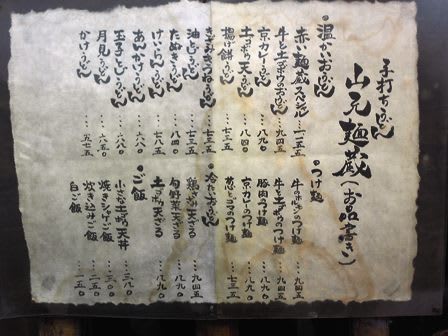 手打ちうどん
山元麺蔵(お品書き)
・温かいおうどん
赤い麺蔵スペシャル…一一五五
牛と土ゴボウのおうどん…九四五
京カレーうどん…八九〇
土ゴボウ天うどん…八四〇
揚げ餅うどん…七三五
きざみきつねうどん…七三五
油とじうどん…七三五
たぬきうどん…八四〇
けいらんうどん…七八〇
あんかけうどん…六八〇
玉子とじうどん…六八〇
月見うどん…六五〇
かけうどん…五七五
・つけ麺
牛のホルモンのつけ麺…九四五
牛と土ゴボウのつけ麺…九四五
豚肉のつけ麺…八九〇
京カレーのつけ麺…八九〇
葱とゴマのつけ麺…七三五
・冷たいおうどん
鶏ささみ天ざる…九四五
旬野菜天ざる…八九〇
土ゴボウ天ざる…八九〇
・ご飯
小さな土ゴボウ天丼…三八〇
焼きシャケご飯…三一〇
炊き込みご飯…二一〇
白ご飯…一五〇